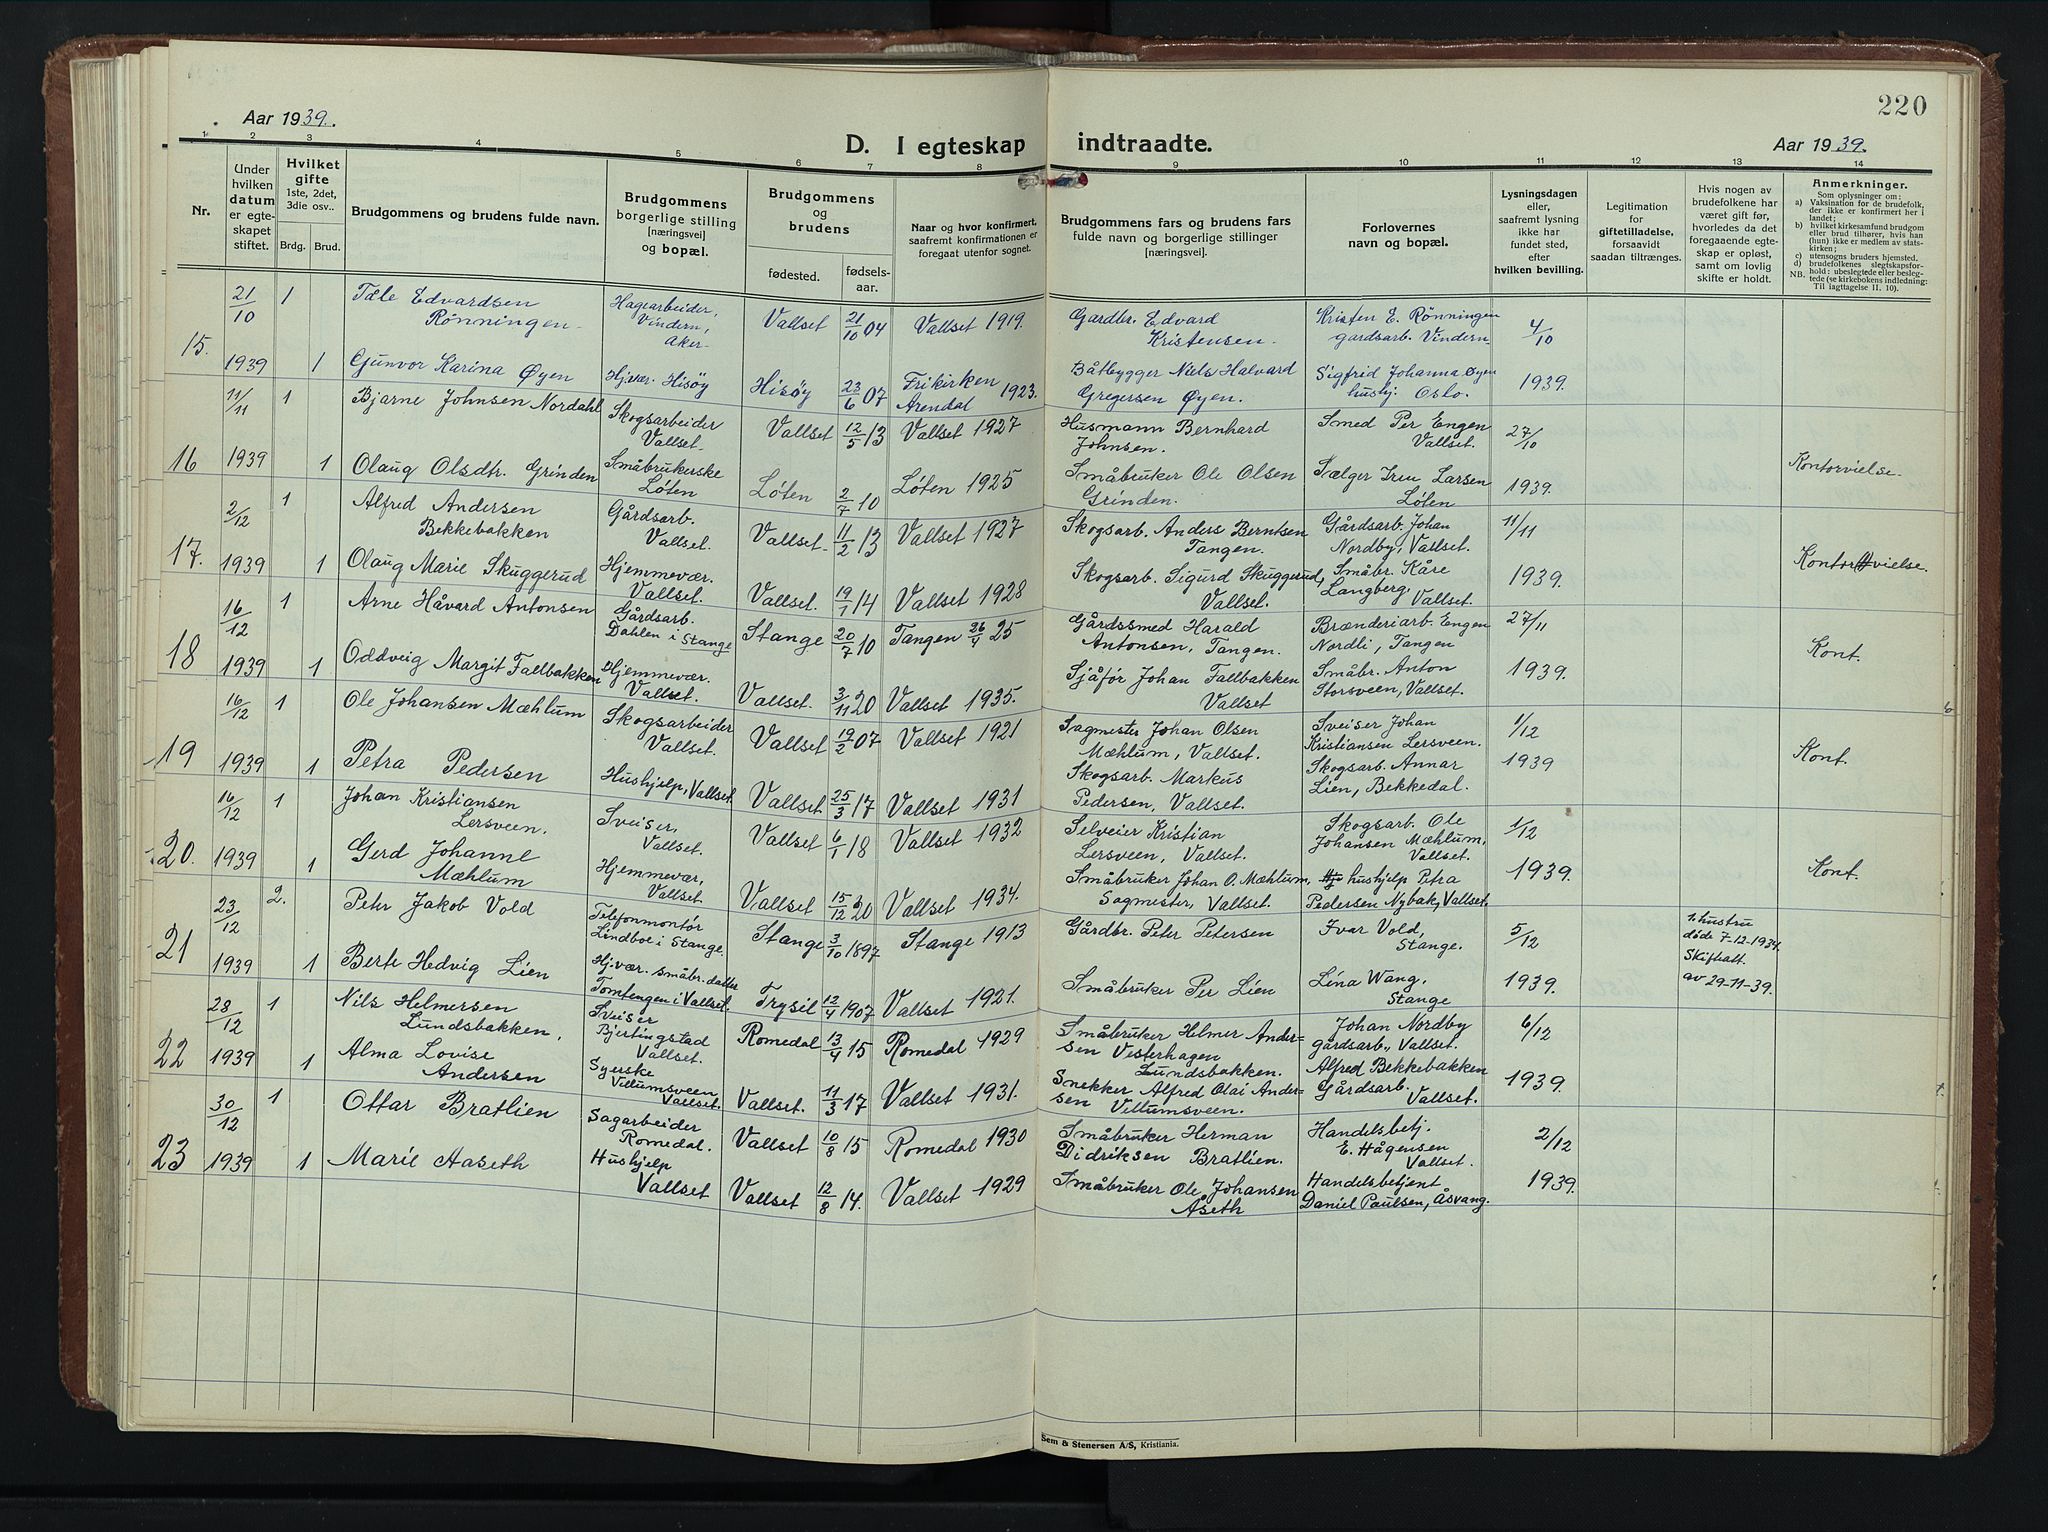 220
Aar 1939.
D. I egteskap indtraadte.
Aar 1939.
1 2 3 4 5 6 7 8 9 10 11 12 13 14
Nr.
Under
hvilken
datum
er egte-
skapet
stiftet.
Hvilket
gifte
1ste, 2det,
3die osv..
Brdg. Brud.
Brudgommens og brudens fulde navn.
Brudgommens
borgerlige stilling
[næringsvei]
og bopæl.
Brudgommens
og
brudens
fødested.
fødsels-
aar.
Naar og hvor konfirmert,
saafremt konfirmationen er
foregaat utenfor sognet.
Brudgommens fars og brudens fars
fulde navn og borgerlige stillinger
[næringsvei].
Forlovernes
navn og bopæl.
Lysningsdagen
eller,
saafremt lysning
ikke har
fundet sted,
efter
hvilken bevilling.
Legitimation
for
giftetilladelse,
forsaavidt
saadan tiltrænges.
Hvis nogen av
brudefolkene har
været gift før,
hvorledes da det
foregaaende egte-
skap er opløst,
samt om lovlig
skifte er holdt.
Anmerkninger.
Som oplysninger om:
a) Vaksination for de brudefolk,
der ikke er konfirmert her i
landet;
b) hvilket kirkesamfund brudgom
eller brud tilhører, hvis han
(hun) ikke er medlem av stats-
kirken;
c) utensogns bruders hjemsted.
d) brudefolkenes slegtskapsfor-
hold: ubeslegtede eller besleg-
NB. tede (se kirkebokens indledning:
Til iagttagelse II. 10).
15.
21/10 1 Tæle Edvardsen
Rönningen
Hagearbeider,
Vindern,
Aker
Vallset 21/10 04 Vallset 1919.
Gardbr. Edvard
Kristensen.
Kristen E. Rönningen
gardsarb. Vindern
4/10
1939 1 Gunvor Karina Øyen
Hjvær. Hisöy
Hisöy 23/6 07
Frikirken
Arendal 1923.
Båtbygger Niels Halvard
Gregersen Øyen.
Sigfrid Johanna Øyen
hushj. Oslo.
1939.
16
11/11 1 Bjarne Johnsen Nordahl
Skogsarbeider
Vallset
Vallset 12/5 13 Vallset 1927
Husmann Bernhard
Johnsen.
Smed Per Engen
Vallset.
27/10
1939 1 Olaug Olsdtr. Grinden
Småbrukerske
Löten
Löten 2/7 10 Löten 1925
Småbruker Ole Olsen
Grinden.
Sælger Larsen
Löten
1939.
Kontorvielse
17.
2/12 1 Alfred Andersen
Bekkebakken
Gårdsarb.
Vallset.
Vallset 11/2 13 Vallset 1927
Skogsarb. Anders Berntsen
Tangen.
Gårdsarb. Johan
Nordby, Vallset.
11/11
1939 1 Olaug Marie Skuggerud
Hjemmevær.
Vallset.
Vallset. 19/1 14 Vallset 1928
Skogsarb. Sigurd Skuggerud,
Vallset.
Småbr. Kåre
Langberg, Vallset.
1939.
Kontorvielse.
18
16/12 1 Arne Håvard Antonsen
Gårdsarb.
Dahlen i Stange
Stange 20/7 10 Tangen 26/4 25
Gårdssmed Harald
Antonsen, Tangen.
Brænderiarb. Engen
Nordli, Tangen
27/11
1939 1 Oddveig Margit Fallbakken
Hjemmevær.
Vallset.
Vallset. 3/11 20 Vallset 1935.
Sjåför Johan Fallbakken
Vallset
Småbr. Anton
Storsveen, Vallset.
1939.
Kont.
19
16/12 1 Ole Johansen Mæhlum
Skogsarbeider
Vallset.
Vallset 19/2 07 Vallset 1921
Sagmester Johan Olsen
Mæhlum, Vallset.
Sveiser Johan
Kristiansen Lersveen.
1/12
1939 1 Petra Pedersen
Hushjelp, Vallset.
Vallset 25/3 17 Vallset 1931
Skogsarb. Markus
Pedersen, Vallset.
Skogsarb. Annar
Lien, Bekkedal.
1939
Kont.
20.
16/12 1 Johan Kristiansen
Lersveen.
Sveiser,
Vallset.
Vallset 6/1 18 Vallset 1932
Selveier Kristian
Lersveen, Vallset.
Skogsarb. Ole
Johansen Mæhlum,
Vallset.
1/12
1939 1 Gerd Johanne
Mæhlum
Hjemmevær,
Vallset.
Vallset 15/12 20 Vallset 1934.
Småbruker Johan O. Mæhlum,
Sagmester, Vallset.
hushjelp Petra
Pedersen Nybak, Vallset.
1939.
Kont.
21
23/12 2. Peter Jakob Vold
Telefonmontör
Lindboe i Stange.
Stange 3/10 1897 Stange 1913
Gårdbr. Peter Petersen
Ivar Vold,
Stange.
5/12
1. hustru
döde 7-12-1934.
Skifteatt.
av 29-11-39.
1939 1 Berte Hedvig Lien
Hj.vær. småbr. datter
Tomtengen i Vallset.
Trysil 12/4 1907 Vallset 1921.
Småbruker Per Lien
Lina Wang.
Stange
1939.
22
28/12 1 Nils Helmersen
Lundsbakken,
Sveiser
Bjertingstad
Vallset.
Romedal 13/4 15 Romedal 1929
Småbruker Helmer Ander-
sen Vesterhagen
Lundsbakken.
Johan Nordby
gårdsarb., Vallset.
6/12
1939 1 Alma Lovise
Andersen
Syerske
Villumsveen
Vallset.
Vallset. 11/3 17 Vallset 1931.
Snekker Alfred Olai Ander-
sen Villumsveen.
Alfred Bekkebakken
Gårdsarb. Vallset.
1939.
23
30/12 1 Ottar Bratlien
Sagarbeider
Romedal.
Vallset 10/8 15 Romedal 1930
Småbruker Herman
Didriksen Bratlien.
Handelsbetj.
E. Hågensen
Vallset.
2/12
1939 1 Marie Aaseth
Hushjelp
Vallset
Vallset 12/8 14. Vallset 1929
Småbruker Ole Johansen
Aseth
Handelsbetjent
Daniel Paulsen, Åsvang.
1939.
Sem & Stenersen A/S, Kristiania.